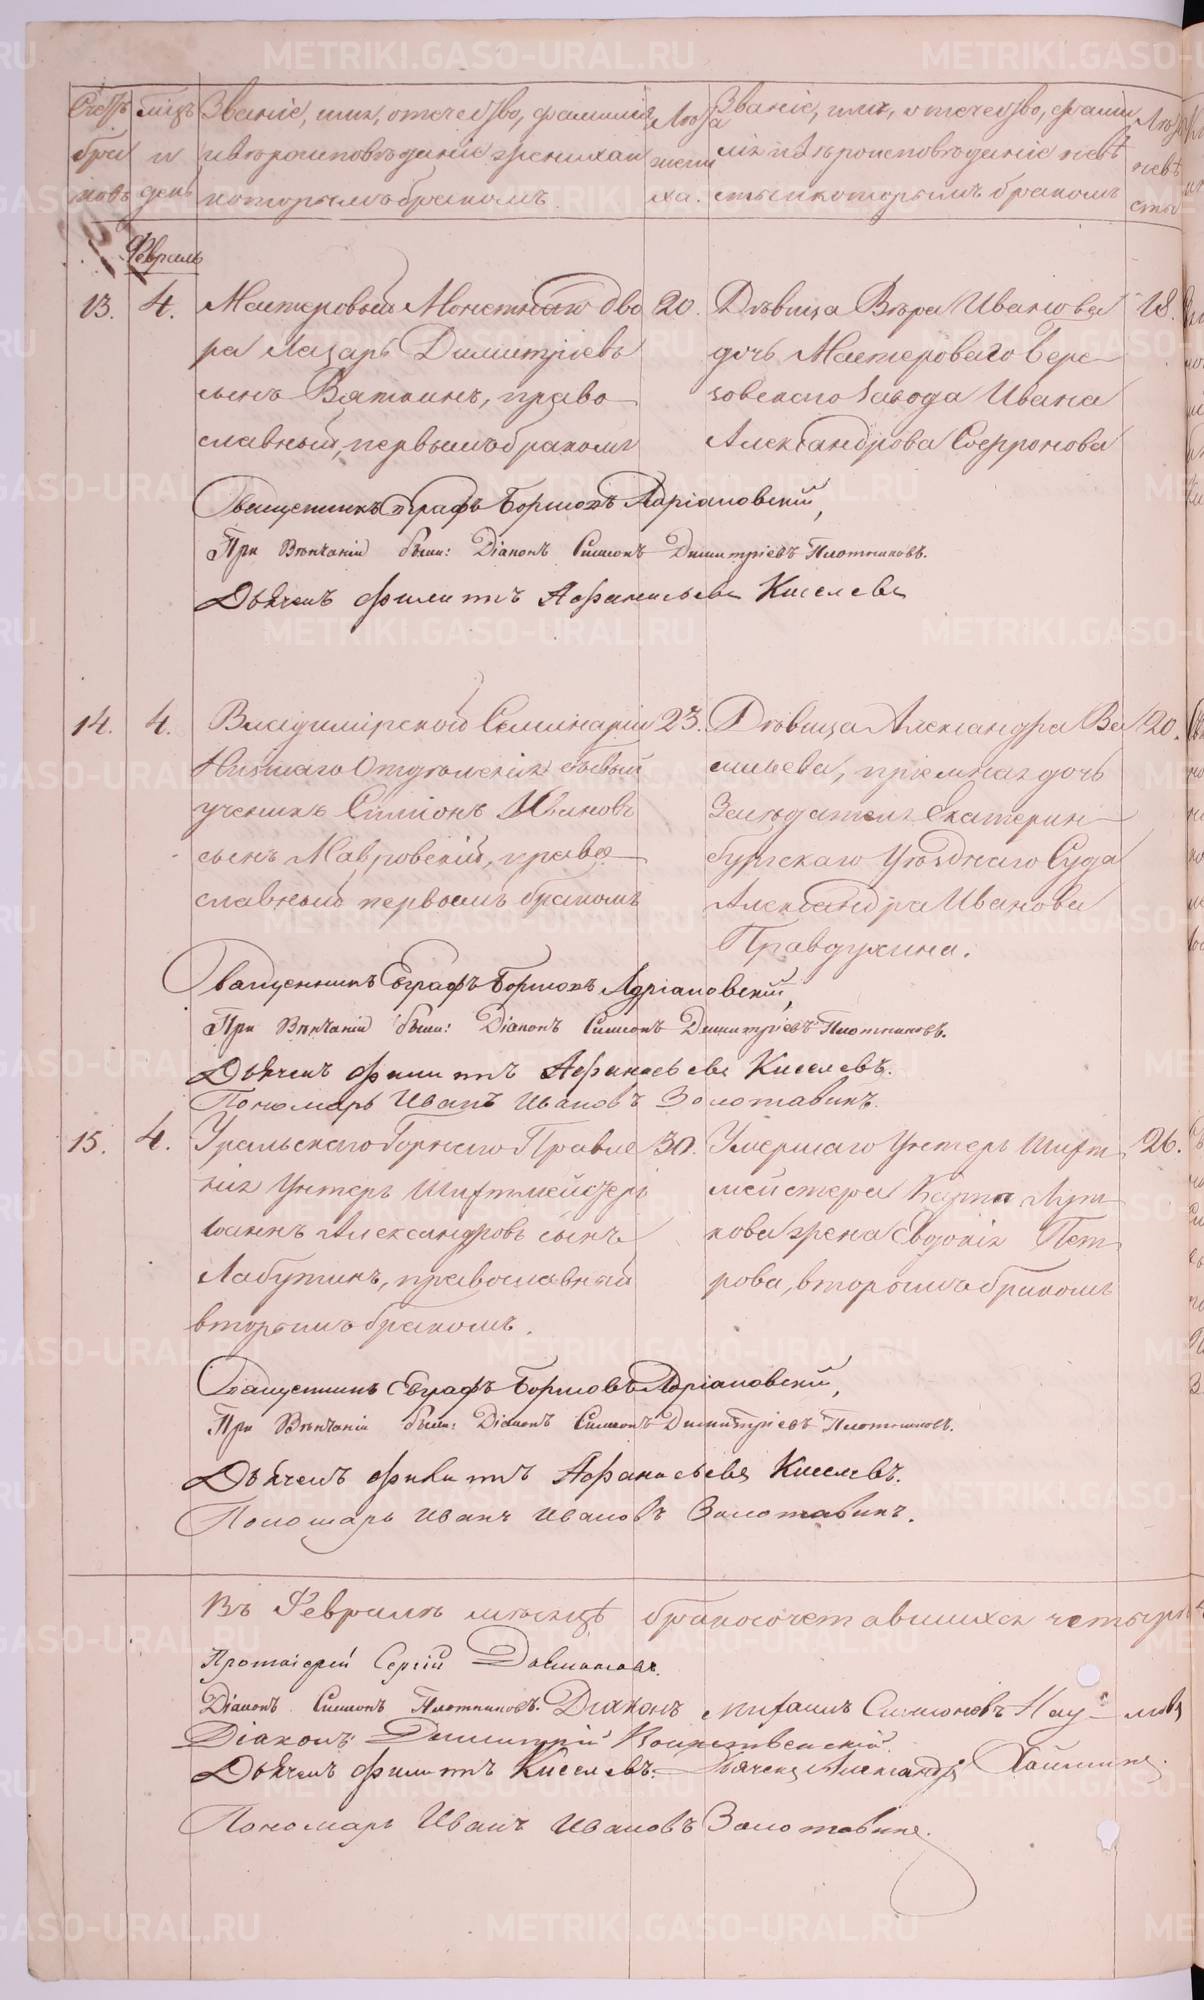 Счетъ браковъ
Мѣсяцъ и день
Званіе, имя, отечество, фамилія
и вѣроисповѣданіе жениха и
которымъ бракомъ.
Лѣта жениха.
Званіе, имя, отечество, фами
лія и вѣроисповѣданіе невѣ
сты и которымъ бракомъ
Лѣта невѣсты
Февраль
13. 4.
Мастеровый Монетнаго дво
ра Лазарь Димитріевъ
сынъ Вяткинъ, право
славный, первымъ бракомъ
20.
Дѣвица Вѣра Иванова
дочь Мастероваго Бере
зовскаго Завода Ивана
Александрова Софронова
18.
Священникъ Евграфъ Борисовъ Адріановскій,
При Вѣнчаніи были: Діаконъ Симеонъ Димитріевъ Плотниковъ.
Дьячекъ Филиппъ Афанасьевъ Киселевъ
14. 4.
Владимірской Семинаріи
Низшаго Отдѣленія бывый
ученикъ Симіонъ Ивановъ
сынъ Мавровскій, право
славный первымъ бракомъ
23.
Дѣвица Александра Ва
сильева, пріемная дочь
Засѣдателя Екатерин
бургскаго Уѣзднаго Суда
Александра Иванова
Правдухина.
20.
Священникъ Евграфъ Борисовъ Адріановскій,
При Вѣнчаніи были: Діаконъ Симеонъ Димитріевъ Плотниковъ.
Дьячекъ Филиппъ Афанасьевъ Киселевъ.
Пономарь Иванъ Ивановъ Золотавинъ.
15. 4.
Уральскаго Горнаго Правле
нія Унтеръ Шихтмейстеръ
Іоаннъ Александровъ сынъ
Лабутинъ, православный
вторымъ бракомъ.
30.
Умершаго Унтеръ Шихт
мейстера Карпа Лут
кова жена Евдокія Пет
рова, вторымъ бракомъ
26.
Священникъ Евграфъ Борисовъ Адріановскій,
При Вѣнчаніи были: Діаконъ Симеонъ Димитріевъ Плотниковъ.
Дьячекъ Филиппъ Афанасьевъ Киселевъ.
Пономарь Иванъ Ивановъ Золотавинъ.
Въ Февралѣ мѣсяцѣ бракосочетавшихся четыре
Протоіерей Сергій
Діаконъ Симеонъ Плотниковъ. Діаконъ Михаилъ Симоновъ Наумовъ
Діаконъ Димитрій
Дьячекъ Филиппъ Киселевъ. Дьячекъ Александръ
Пономарь Иванъ Ивановъ Золотавинъ.
METRIKI.GASO-URAL.RU